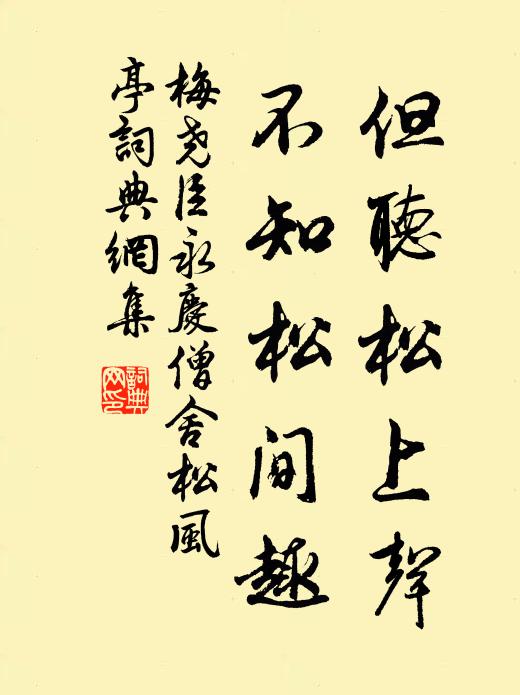 但聽松上聲
不知松間趣
梅尧臣永慶僧舍松風
亭詞典網集
詞典
网印